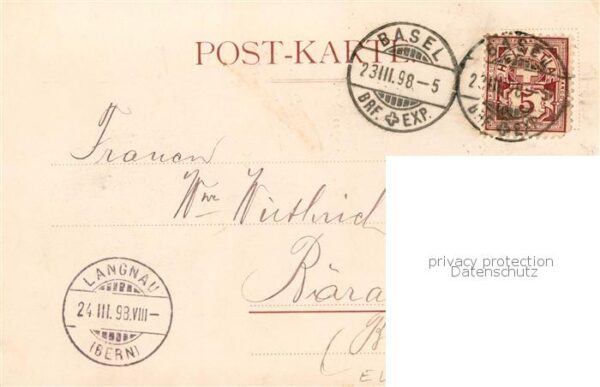 POST-KARTE
BASEL
23 III. 98.–5
BRF. EXP.
BASEL
5
Frauen
Wwe Wüthrich
privacy protection
Datenschutz
Bära
LANGNAU
24. III. 98. VIII–
(BERN)
(B
EL